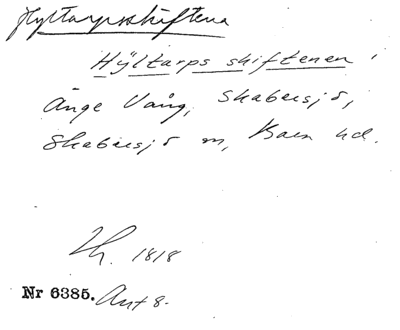 Hyltarpsskiftena
Hÿltarps skiftenen i
Änge Vång, Skabersjö,
Skabersjö sn, Bara hd.
Lh. 1818
Nr 6385. Avt 8.